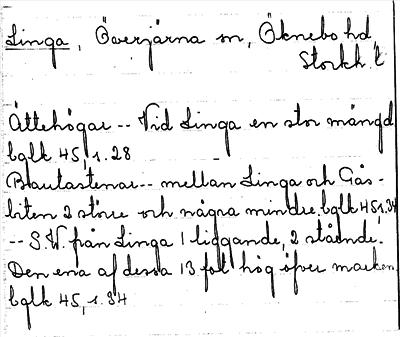 Linga, Överjärna sn, Öknebo hd,
Stockh. l.
Ättehögar -- Vid Linga en stor mängd
bglk 45, s. 28
Bautastenar -- mellan Linga och Gås-
biten 2 större och några mindre. bglk 45, s. 34
-- S.V. från Linga 1 liggande, 2 stående.
Den ena af dessa 13 fot hög öfver marken.
bglk 45, s. 34